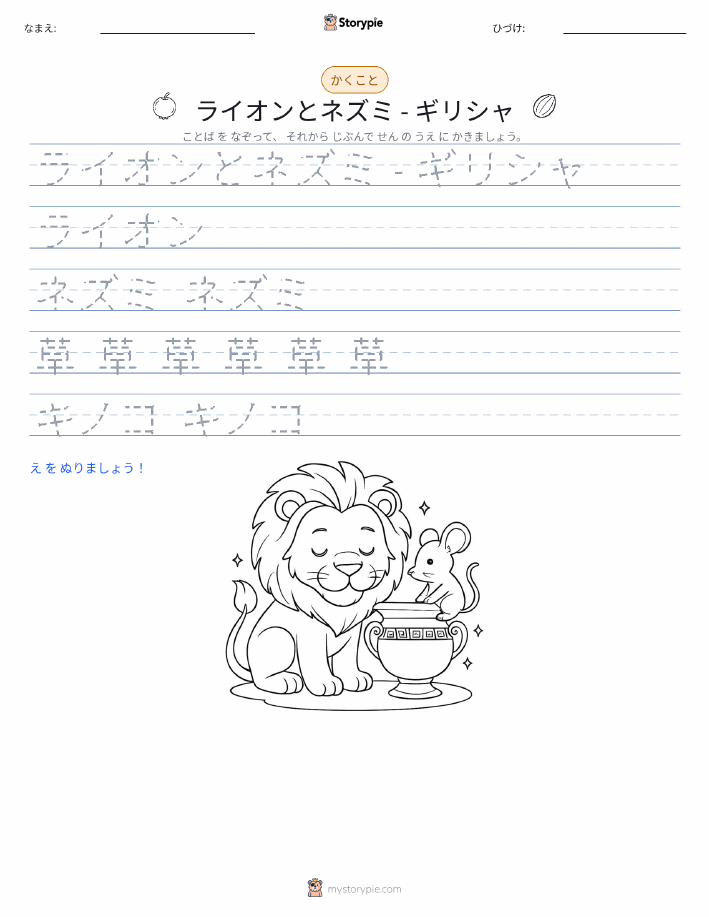 なまえ:
Storypie
ひづけ:
かくこと
ライオンとネズミ - ギリシャ
ことば を なぞって、 それから じぶんで せん の うえ に かきましょう。
ライオンとネズミ - ギリシャ
ライオン
ネズミ ネズミ
草 草 草 草 草 草
キノコ キノコ
え を ぬりましょう！
mystorypie.com